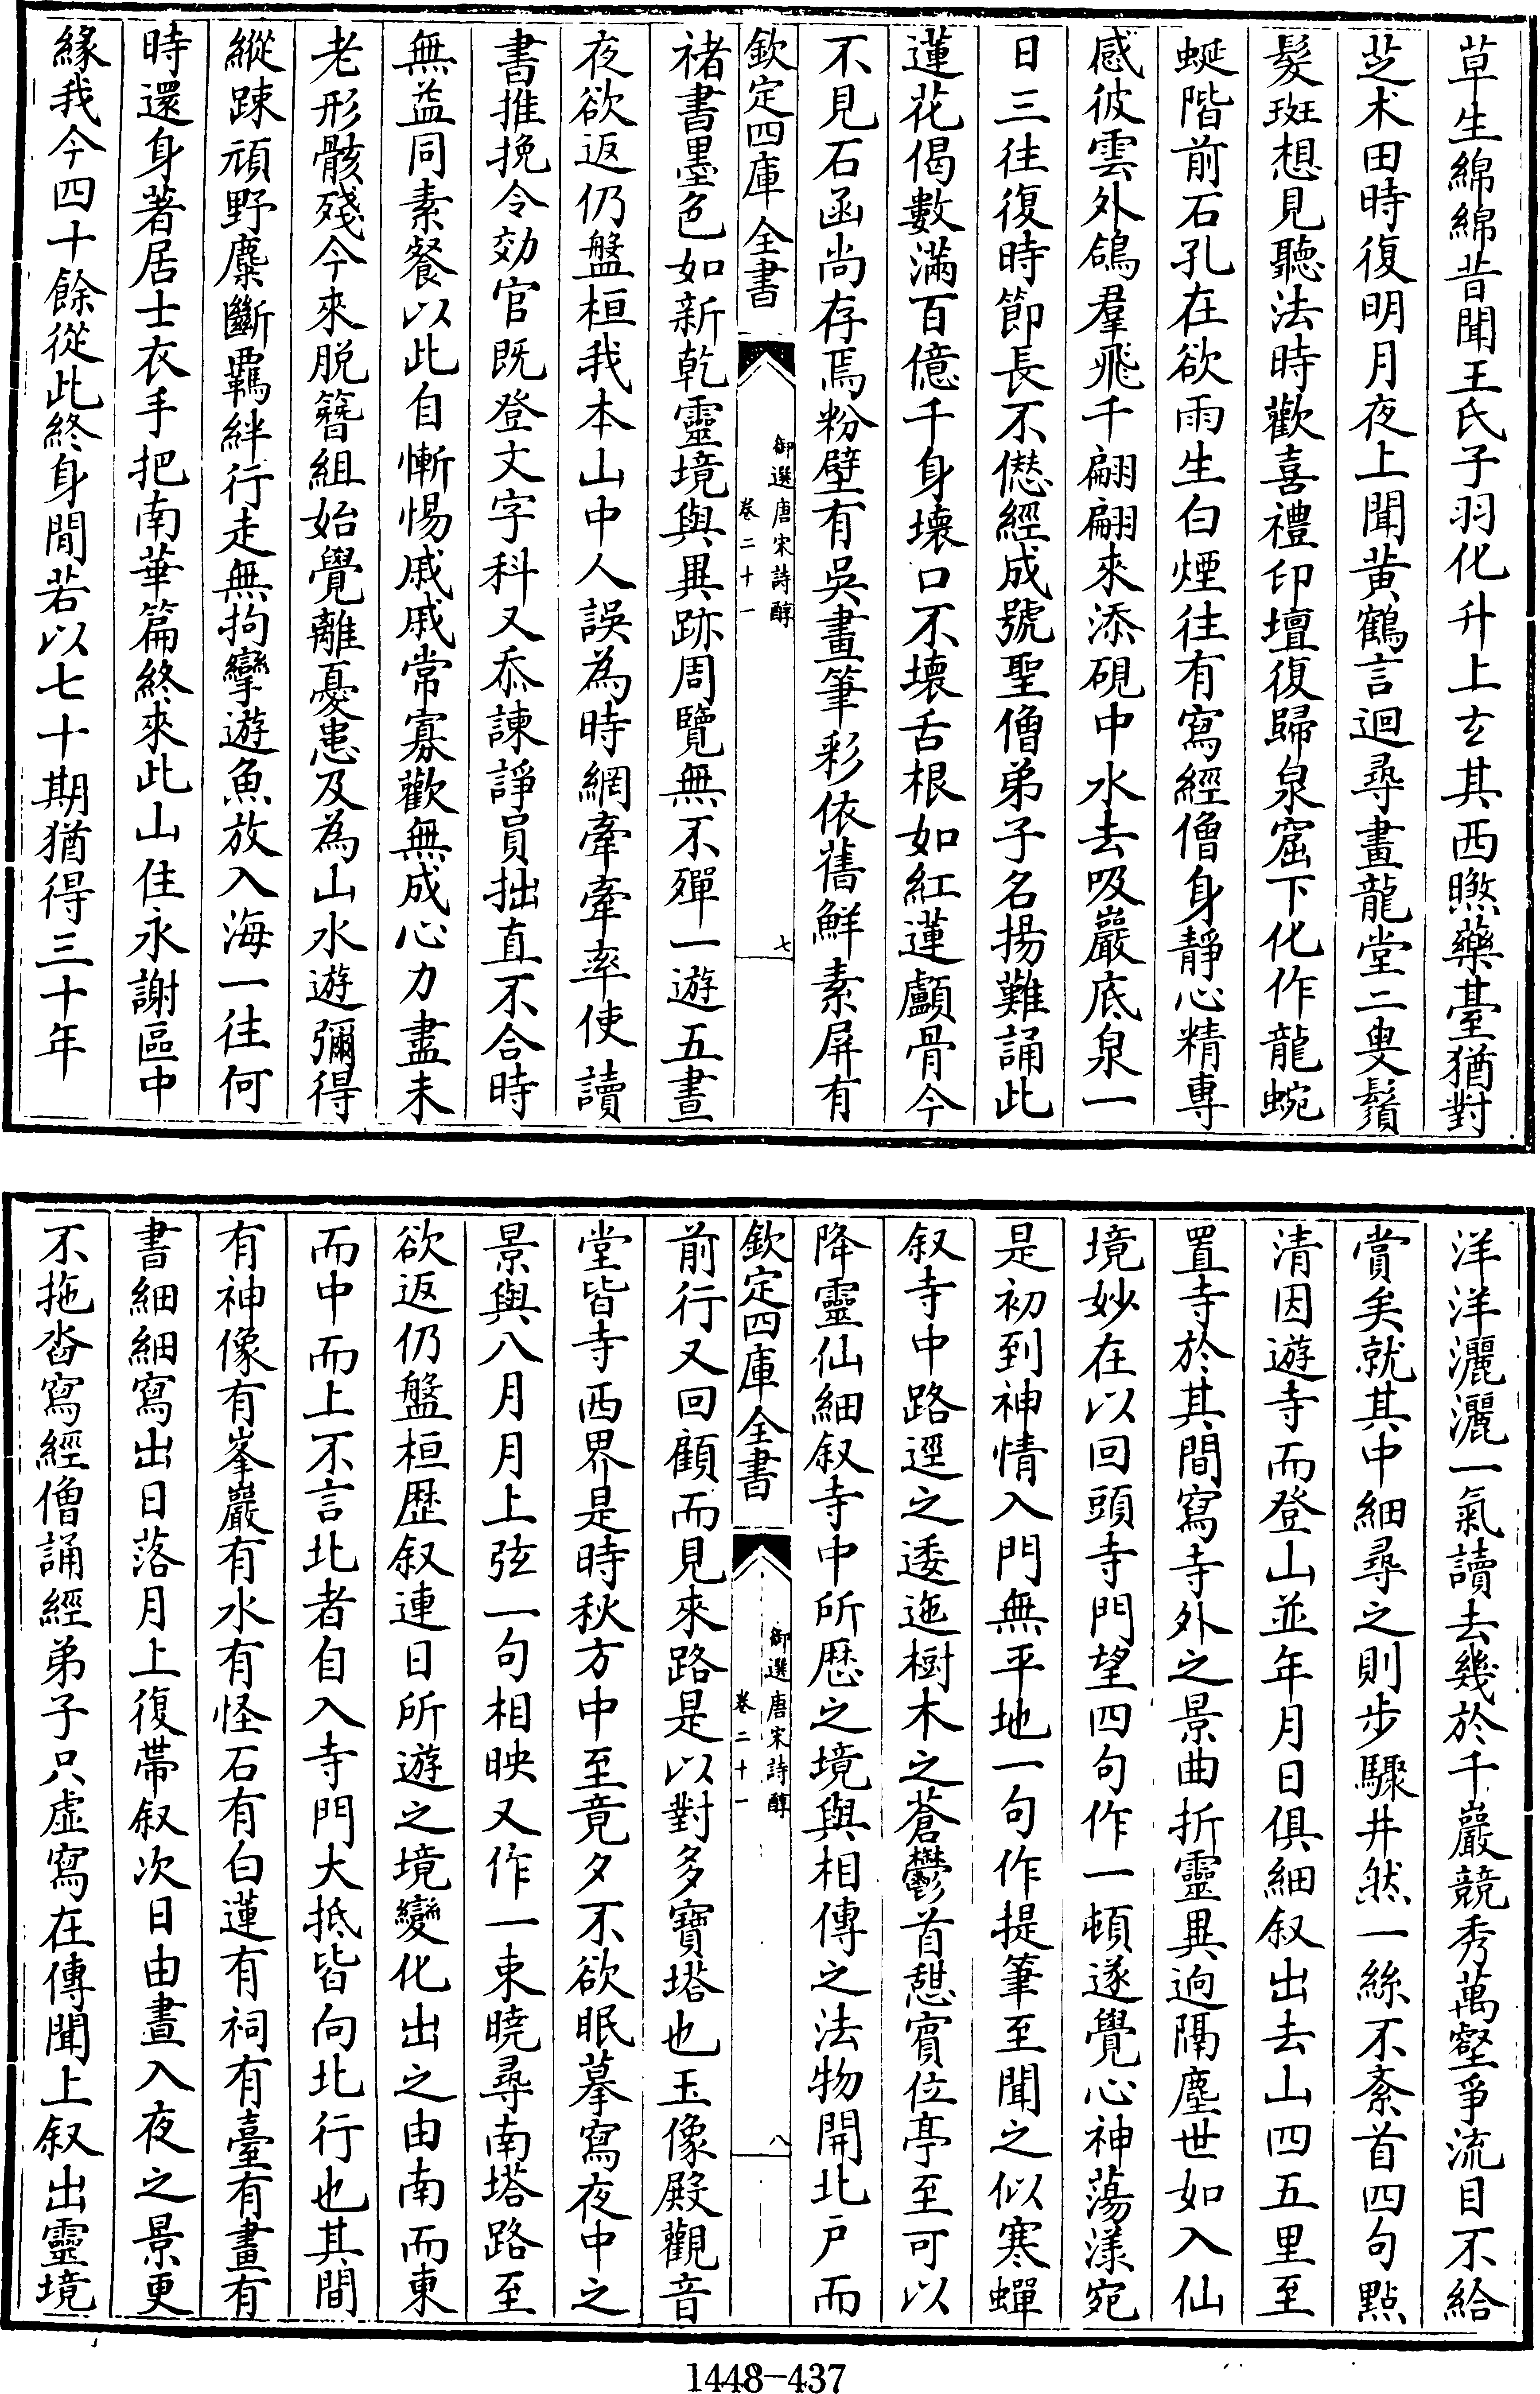 草生綿綿昔聞王氏子羽化升上玄其西㬠藥臺猶對
芝术田時復明月夜上聞黄鶴言迴尋畫龍堂二叟鬚
髮斑想見聽法時歡喜禮印壇復歸泉窟下化作龍蜿
蜒階前石孔在欲雨生白煙往有寫經僧身靜心精專
感彼雲外鴿羣飛千翩翩來添硯中水去吸巖底泉一
日三往復時節長不僁經成號聖僧弟子名揚難誦此
蓮花偈數滿百億千身壊口不壊舌根如紅蓮顱骨今
不見石函尚存焉粉壁有吳畫筆彩依舊鮮素屏有
欽定四庫全書
御選唐宋詩醇
卷二十一
七
褚書墨色如新乾靈境與異跡周覽無不殫一遊五晝
夜欲返仍盤桓我本山中人誤為時網牽牽率使讀
書推挽令効官既登文字科又忝諫諍員拙直不合時
無益同素餐以此自慚惕戚戚常寡歡無成心力盡未
老形骸殘今來脱簪組始覺離憂患及為山水遊彌得
縱踈頑野麋斷羈絆行走無拘攣遊魚放入海一往何
時還身著居士衣手把南華篇終來此山住永謝區中
緣我今四十餘從此終身閒若以七十期猶得三十年
洋洋灑灑一氣讀去幾於千巖競秀萬壑爭流目不給
賞矣就其中細尋之則步驟井然一絲不紊首四句點
清因遊寺而登山並年月日俱細叙出去山四五里至
置寺於其間寫寺外之景曲折靈異逈隔塵世如入仙
境妙在以回頭寺門望四句作一頓遂覺心神蕩漾宛
是初到神情入門無平地一句作提筆至聞之似寒蟬
叙寺中路逕之逶迤樹木之蒼鬱首憇賓位亭至可以
降靈仙細叙寺中所歴之境與相傳之法物開北户而
欽定四庫全書
御選唐宋詩醇
卷二十一
八
前行又回顧而見來路是以對多寶塔也玉像殿觀音
堂皆寺西界是時秋方中至竟夕不欲眠摹寫夜中之
景與八月月上弦一句相映又作一束曉尋南塔路至
欲返仍盤桓歴叙連日所遊之境變化出之由南而東
而中而上不言北者自入寺門大抵皆向北行也其間
有神像有峯巖有水有怪石有白蓮有祠有臺有畫有
書細細寫出日落月上復帶叙次日由晝入夜之景更
不拖沓寫經僧誦經弟子只虚寫在傳聞上叙出靈境
1448-437